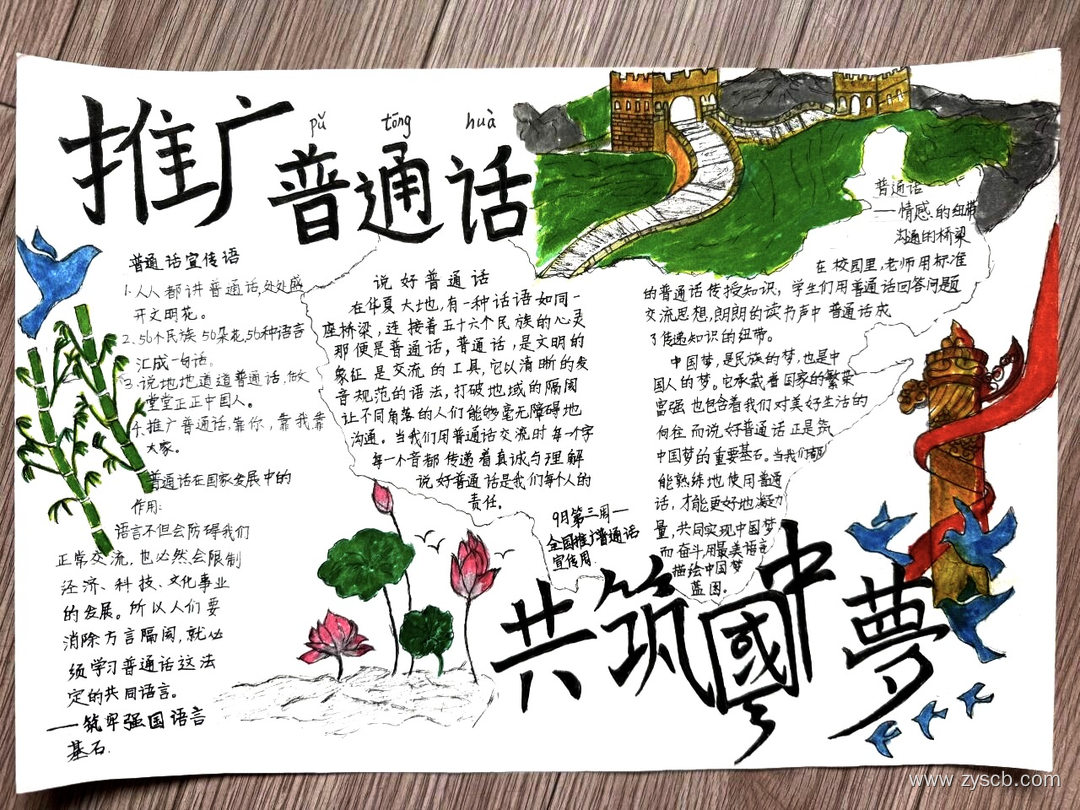 推广
pǔ tōng huà
普通话
普通话宣传语
1.人人都讲普通话,处处盛
开文明花。
2.56个民族56朵花,56种语言
汇成一句话。
3.说地地道道普通话,做
堂堂正正中国人。
4.推广普通话,靠你,靠我靠
大家。
普通话在国家发展中的
作用:
语言不但会防碍我们
正常交流,也必然会限制
经济、科技、文化事业
的发展。所以人们要
消除方言隔阂,就必
须学习普通话这法
定的共同语言。
——筑牢强国语言
基石.
说好普通话
在华夏大地,有一种话语如同一
座桥梁,连接着五十六个民族的心灵
那便是普通话,普通话,是文明的
象征是交流的工具,它以清晰的发
音规范的语法,打破地域的隔阂
让不同角落的人们能够毫无障碍地
沟通。当我们用普通话交流时每一个字
每一个音都传递着真诚与理解
说好普通话是我们每个人的
责任。
9月第三周一
全国推广普通话
宣传周
普通话
——情感的纽带
沟通的桥梁
在校园里,老师用标准
的普通话传授知识,学生们用普通话回答问题
交流思想,朗朗的读书声中普通话成
了传递知识的纽带。
中国梦,是民族的梦,也是中
国人的梦。它承载着国家的繁荣
富强也包含着我们对美好生活的
向往而说好普通话正是筑
中国梦的重要基石。当我们都
能熟练地使用普通
话,才能更好地凝聚力
量,共同实现中国梦
而奋斗,用最美语言
描绘中国梦
蓝图。
共筑中國夢
www.zyscb.com